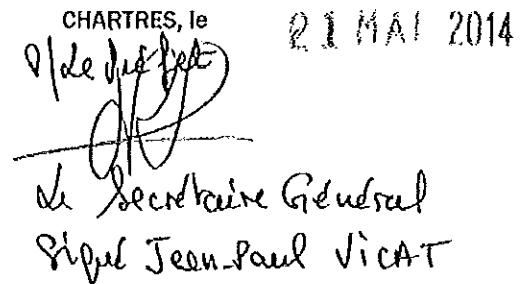 CHARTRES, le 21 MAI 2014
P/Le Préfet
Le Secrétaire Général
Signé Jean-Paul VICAT